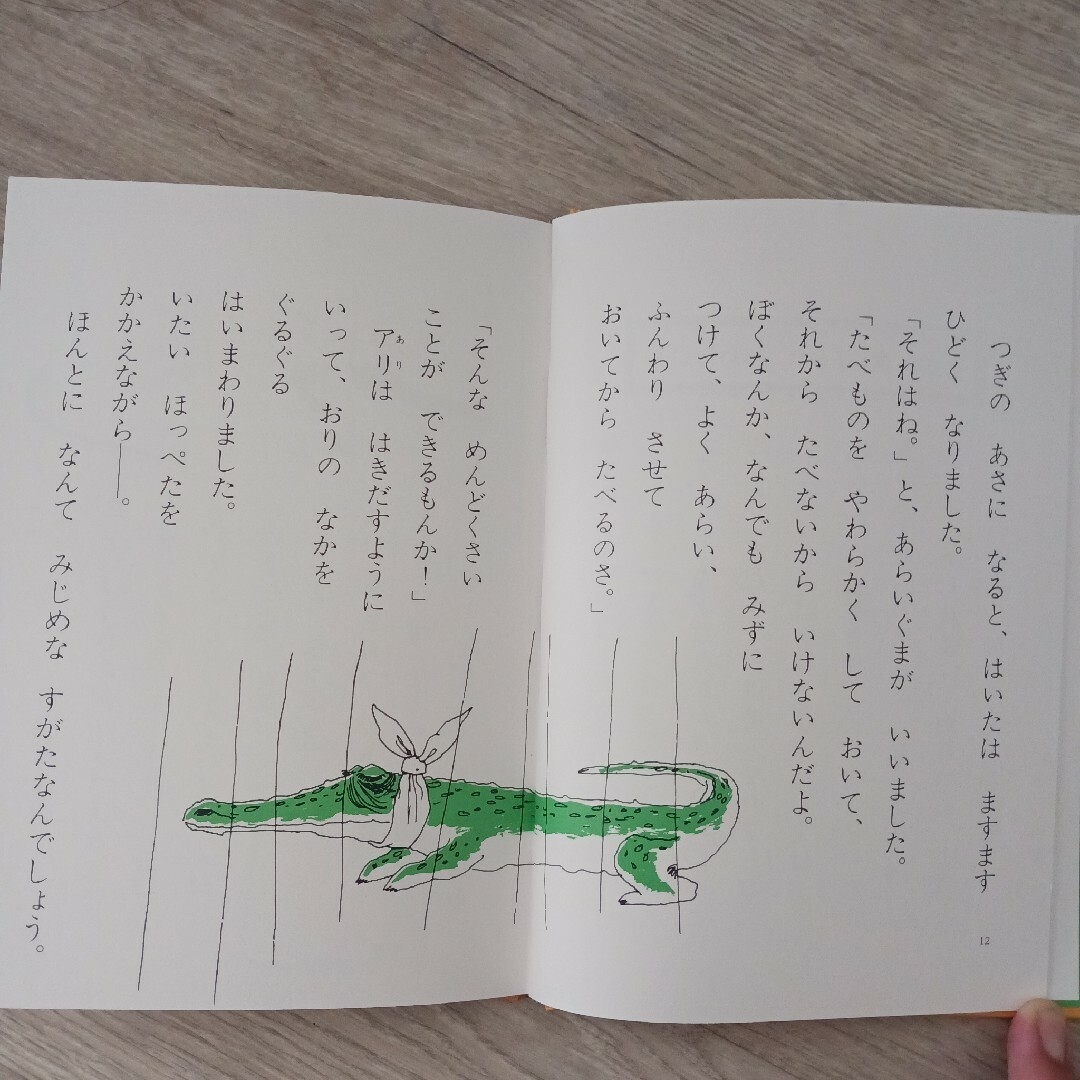 つぎの　あさに　なると、はいたは　ますます
ひどく　なりました。
「それはね。」と、あらいぐまが　いいました。
「たべものを　やわらかく　して　おいて、
それから　たべないから　いけないんだよ。
ぼくなんか、なんでも　みずに
つけて、よく　あらい、
ふんわり　させて
おいてから　たべるのさ。」
12
「そんな　めんどくさい
ことが　できるもんか！」
アリは　はきだすように
あり
いって、おりの　なかを
ぐるぐる
はいまわりました。
いたい　ほっぺたを
かかえながら——。
ほんとに　なんて　みじめな　すがたなんでしょう。